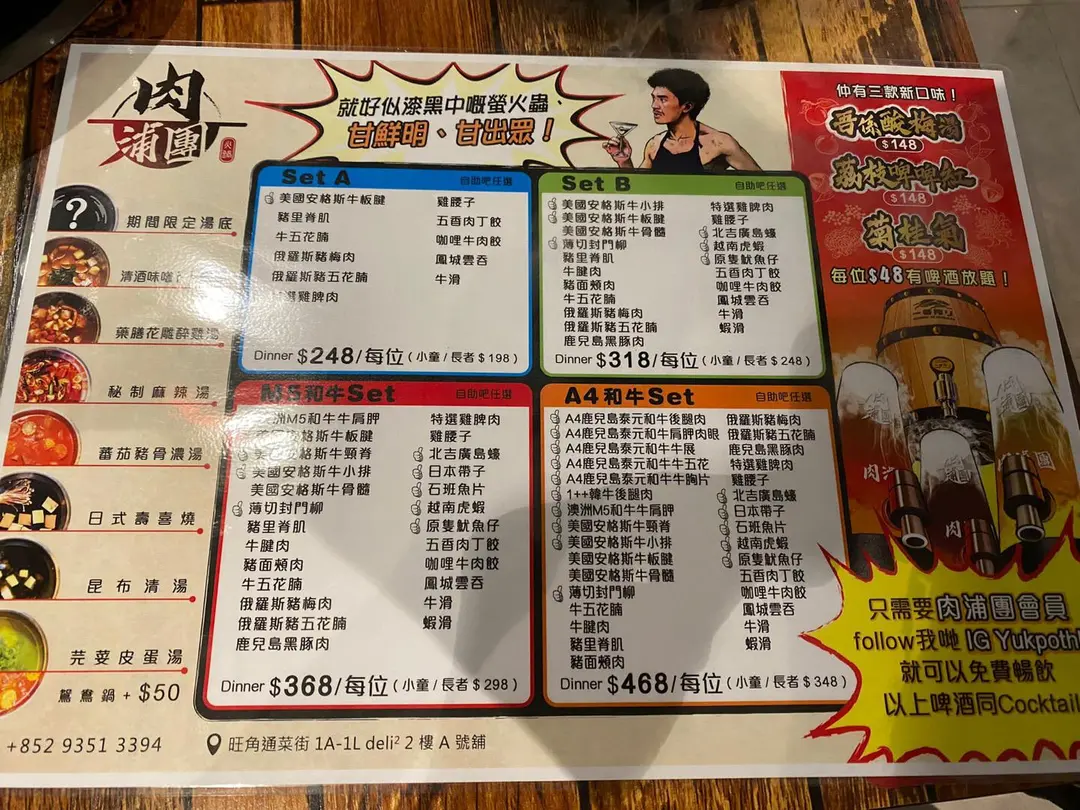 肉
浦團
火鍋
就好似漆黑中嘅螢火蟲、
甘鮮明、甘出眾！
期間限定湯底
清酒味噌
藥膳花雕醉雞湯
秘制麻辣湯
蕃茄豬骨濃湯
日式壽喜燒
昆布清湯
芫荽皮蛋湯
鴛鴦鍋 + $50
Set A
自助吧任選
美國安格斯牛板腱
豬里脊肌
牛五花腩
俄羅斯豬梅肉
俄羅斯豬五花腩
選雞脾肉
雞腰子
五香肉丁餃
咖哩牛肉餃
鳳城雲吞
牛滑
Dinner $248/每位 (小童/長者 $198)
Set B
自助吧任選
美國安格斯牛小排
美國安格斯牛板腱
美國安格斯牛骨髓
薄切封門柳
豬里脊肌
牛腱肉
豬面頰肉
牛五花腩
俄羅斯豬梅肉
俄羅斯豬五花腩
鹿兒島黑豚肉
特選雞脾肉
雞腰子
北吉廣島蠔
越南虎蝦
原隻魷魚仔
五香肉丁餃
咖哩牛肉餃
鳳城雲吞
牛滑
蝦滑
Dinner $318/每位 (小童/長者 $248)
M5和牛Set
自助吧任選
洲M5和牛牛肩胛
格斯牛板腱
安格斯牛頸脊
美國安格斯牛小排
美國安格斯牛骨髓
薄切封門柳
豬里脊肌
牛腱肉
豬面頰肉
牛五花腩
俄羅斯豬梅肉
俄羅斯豬五花腩
鹿兒島黑豚肉
特選雞脾肉
雞腰子
北吉廣島蠔
日本帶子
石班魚片
越南虎蝦
原隻魷魚仔
五香肉丁餃
咖哩牛肉餃
鳳城雲吞
牛滑
蝦滑
Dinner $368/每位 (小童/長者 $298)
A4和牛Set
自助吧任選
A4鹿兒島泰元和牛後腿肉
A4鹿兒島泰元和牛肩胛肉眼
A4鹿兒島泰元和牛牛展
A4鹿兒島泰元和牛牛五花
A4鹿兒島泰元和牛牛胸片
1++韓牛後腿肉
澳洲M5和牛牛肩胛
美國安格斯牛頸脊
美國安格斯牛小排
美國安格斯牛板腱
美國安格斯牛骨髓
薄切封門柳
牛五花腩
牛腱肉
豬里脊肌
豬面頰肉
俄羅斯豬梅肉
俄羅斯豬五花腩
鹿兒島黑豚肉
特選雞脾肉
雞腰子
北吉廣島蠔
日本帶子
石班魚片
越南虎蝦
原隻魷魚仔
五香肉丁餃
咖哩牛肉餃
鳳城雲吞
牛滑
蝦滑
Dinner $468/每位 (小童/長者 $348)
仲有三款新口味！
唔係酸梅湯
$148
荔枝啤啤紅
$148
菊桂氣
$148
每位$48有啤酒放題！
只需要肉浦團會員
follow我哋 IG Yukpoth
就可以免費暢飲
以上啤酒同Cocktail
+852 9351 3394
旺角通菜街 1A-1L deli² 2 樓 A 號舖